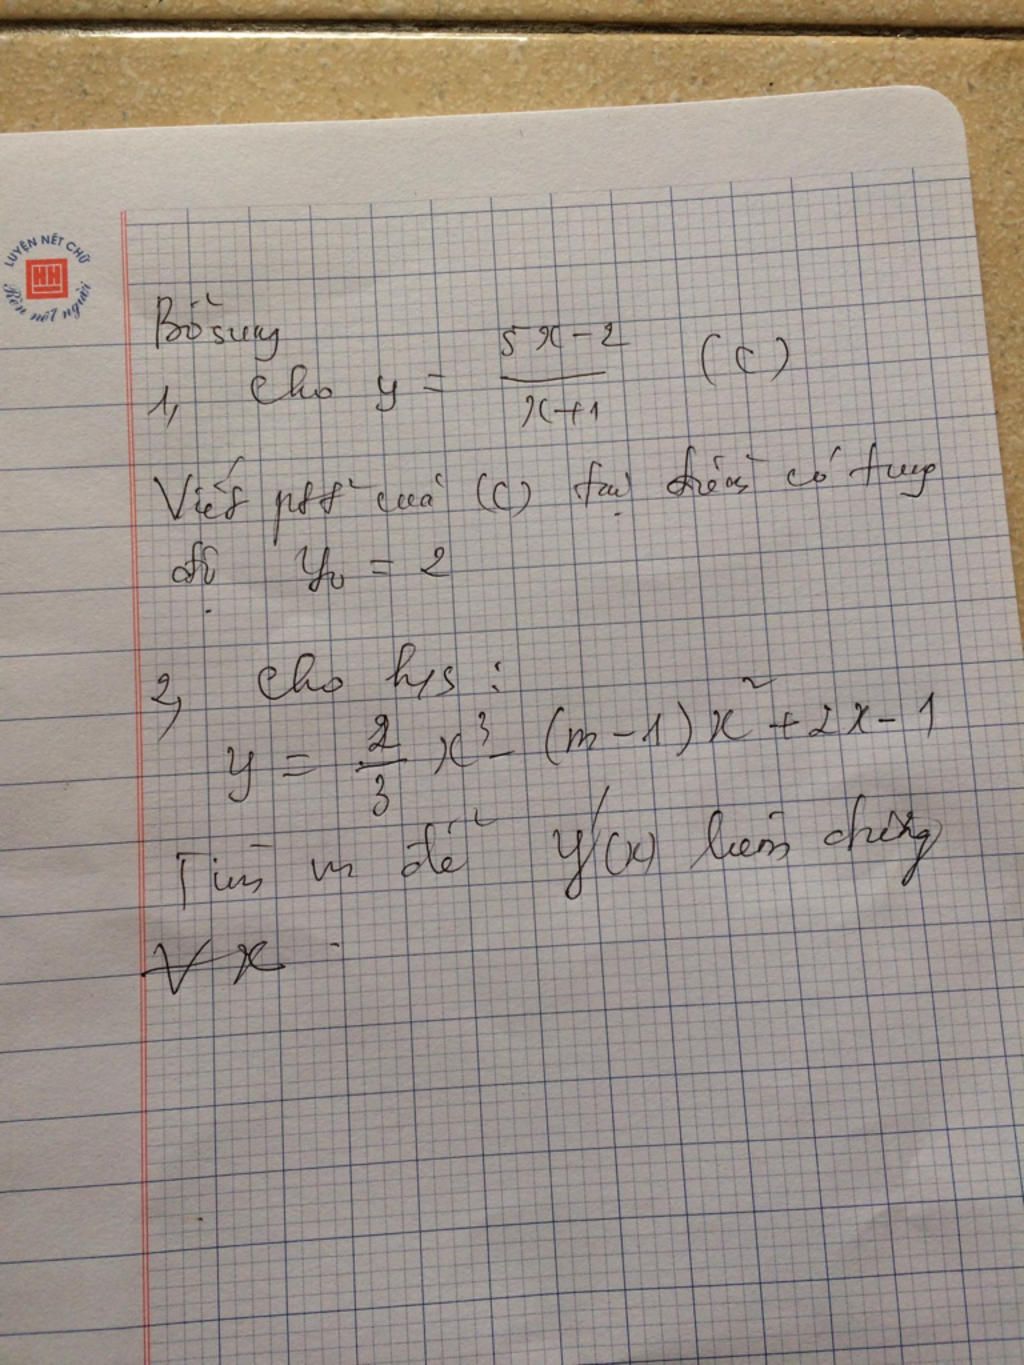 LUYỆN NẾT CHỮ
HH
Rèn nết người
Bổ sung
1, Cho y = \frac{5x-2}{x+1} (C)
Viết ptt² của (C) tại điểm có tung
độ y₀ = 2
2, Cho h/s :
y = \frac{2}{3} x³ - (m-1)x² + 2x - 1
Tìm m để y'(x) luôn dương
∀x.